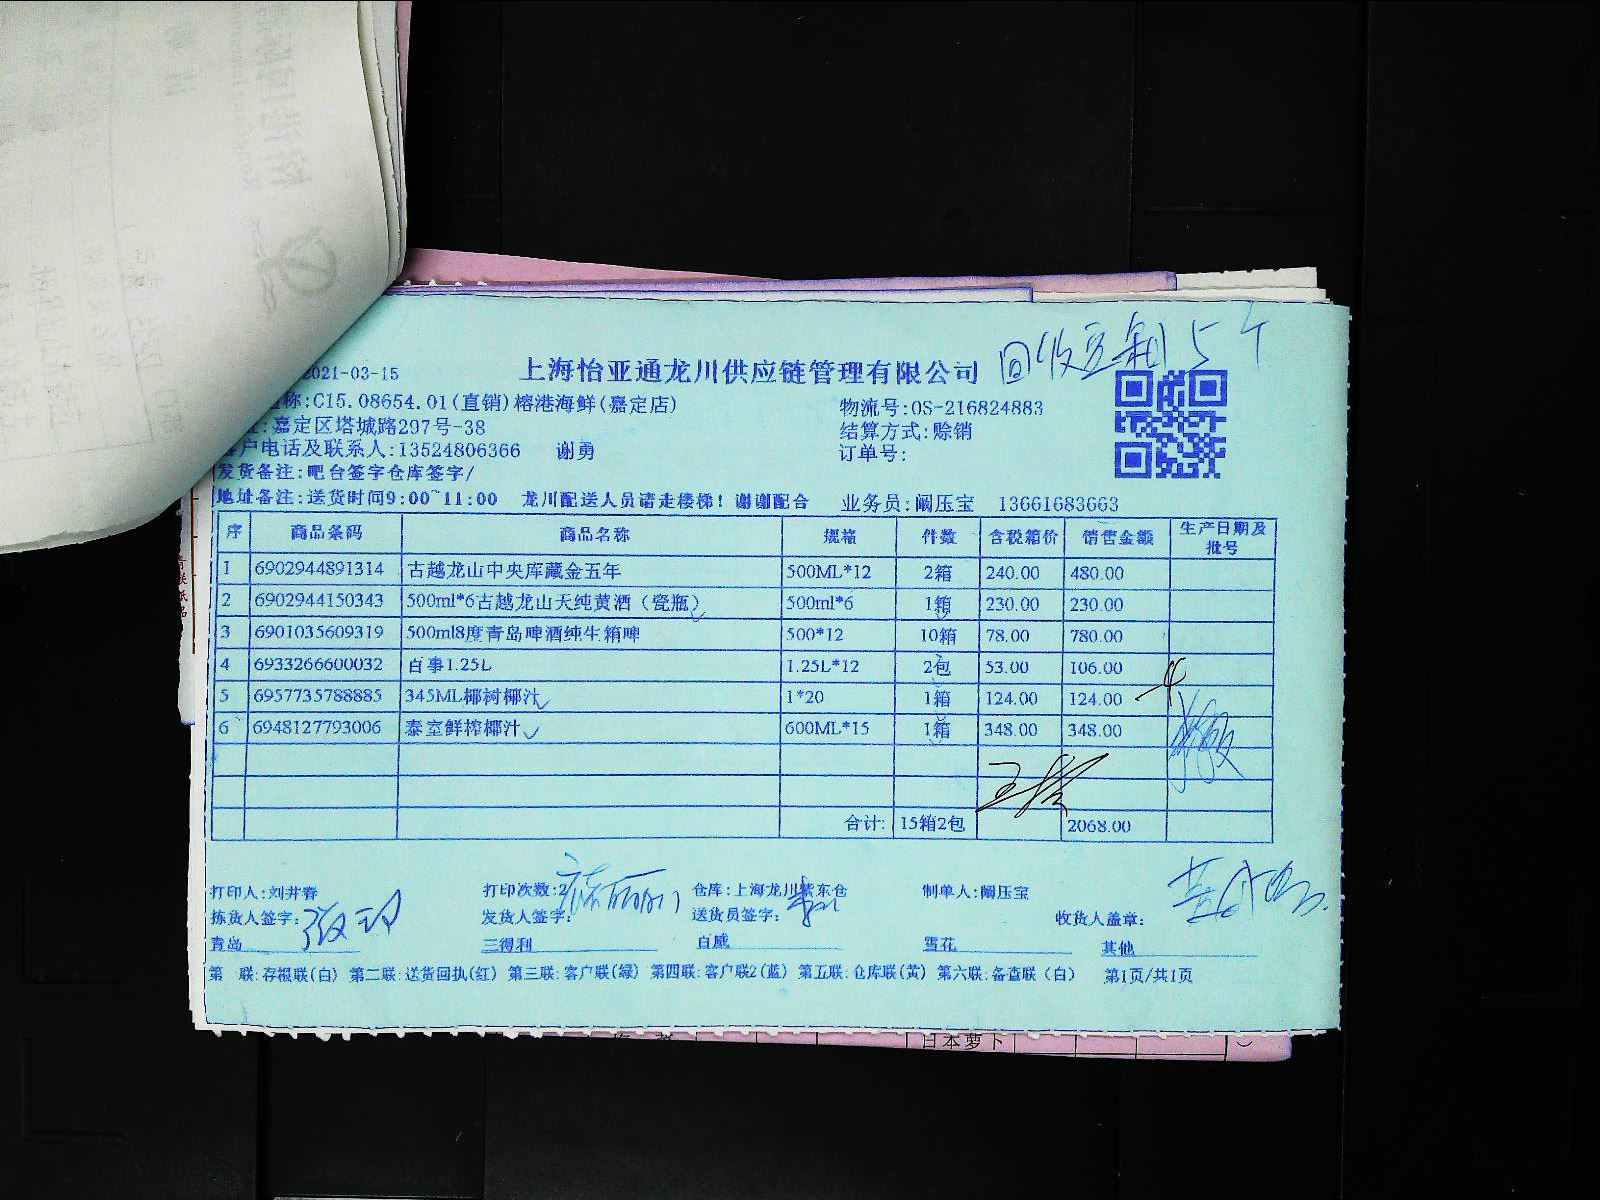 回收 5个
2021-03-15 上海怡亚通龙川供应链管理有限公司
称:C15.08654.01(直销)榕港海鲜(嘉定店) 物流号:OS-216824883
:嘉定区塔城路297号-38 结算方式:赊销
户电话及联系人:13524806366 谢勇 订单号:
发货备注:吧台签字仓库签字/
地址备注:送货时间9:00~11:00 龙川配送人员请走楼梯！谢谢配合 业务员:阚压宝 13661683663
序 商品条码 商品名称 规格 件数 含税箱价 销售金额 生产日期及批号
1 6902944891314 古越龙山中央库藏金五年 500ML*12 2箱 240.00 480.00
2 6902944150343 500ml*6古越龙山天纯黄酒（瓷瓶） 500ml*6 1箱 230.00 230.00
3 6901035609319 500ml8度青岛啤酒纯生箱啤 500*12 10箱 78.00 780.00
4 6933266600032 百事1.25L 1.25L*12 2包 53.00 106.00
5 6957735788885 345ML椰树椰汁 1*20 1箱 124.00 124.00
6 6948127793006 泰室鲜榨椰汁 600ML*15 1箱 348.00 348.00
合计: 15箱2包 2068.00
打印人:刘井春 打印次数:2 仓库:上海龙川紫东仓 制单人:阚压宝
拣货人签字: 发货人签字: 送货员签字: 收货人盖章:
青岛 三得利 百威 雪花 其他
第 联:存根联(白) 第二联:送货回执(红) 第三联:客户联(绿) 第四联:客户联2(蓝) 第五联:仓库联(黄) 第六联:备查联（白） 第1页/共1页
日本萝卜